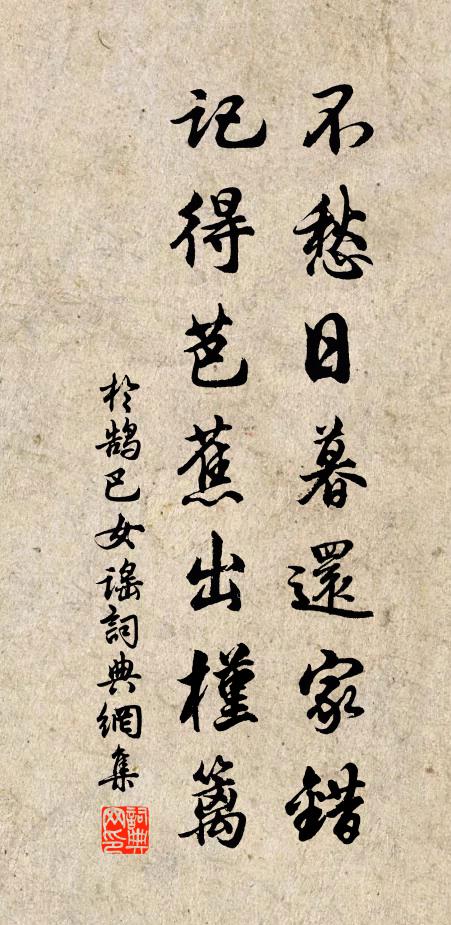 不愁日暮還家錯
記得芭蕉出槿籬
於鵠巴女謠詞典網集
詞典网印